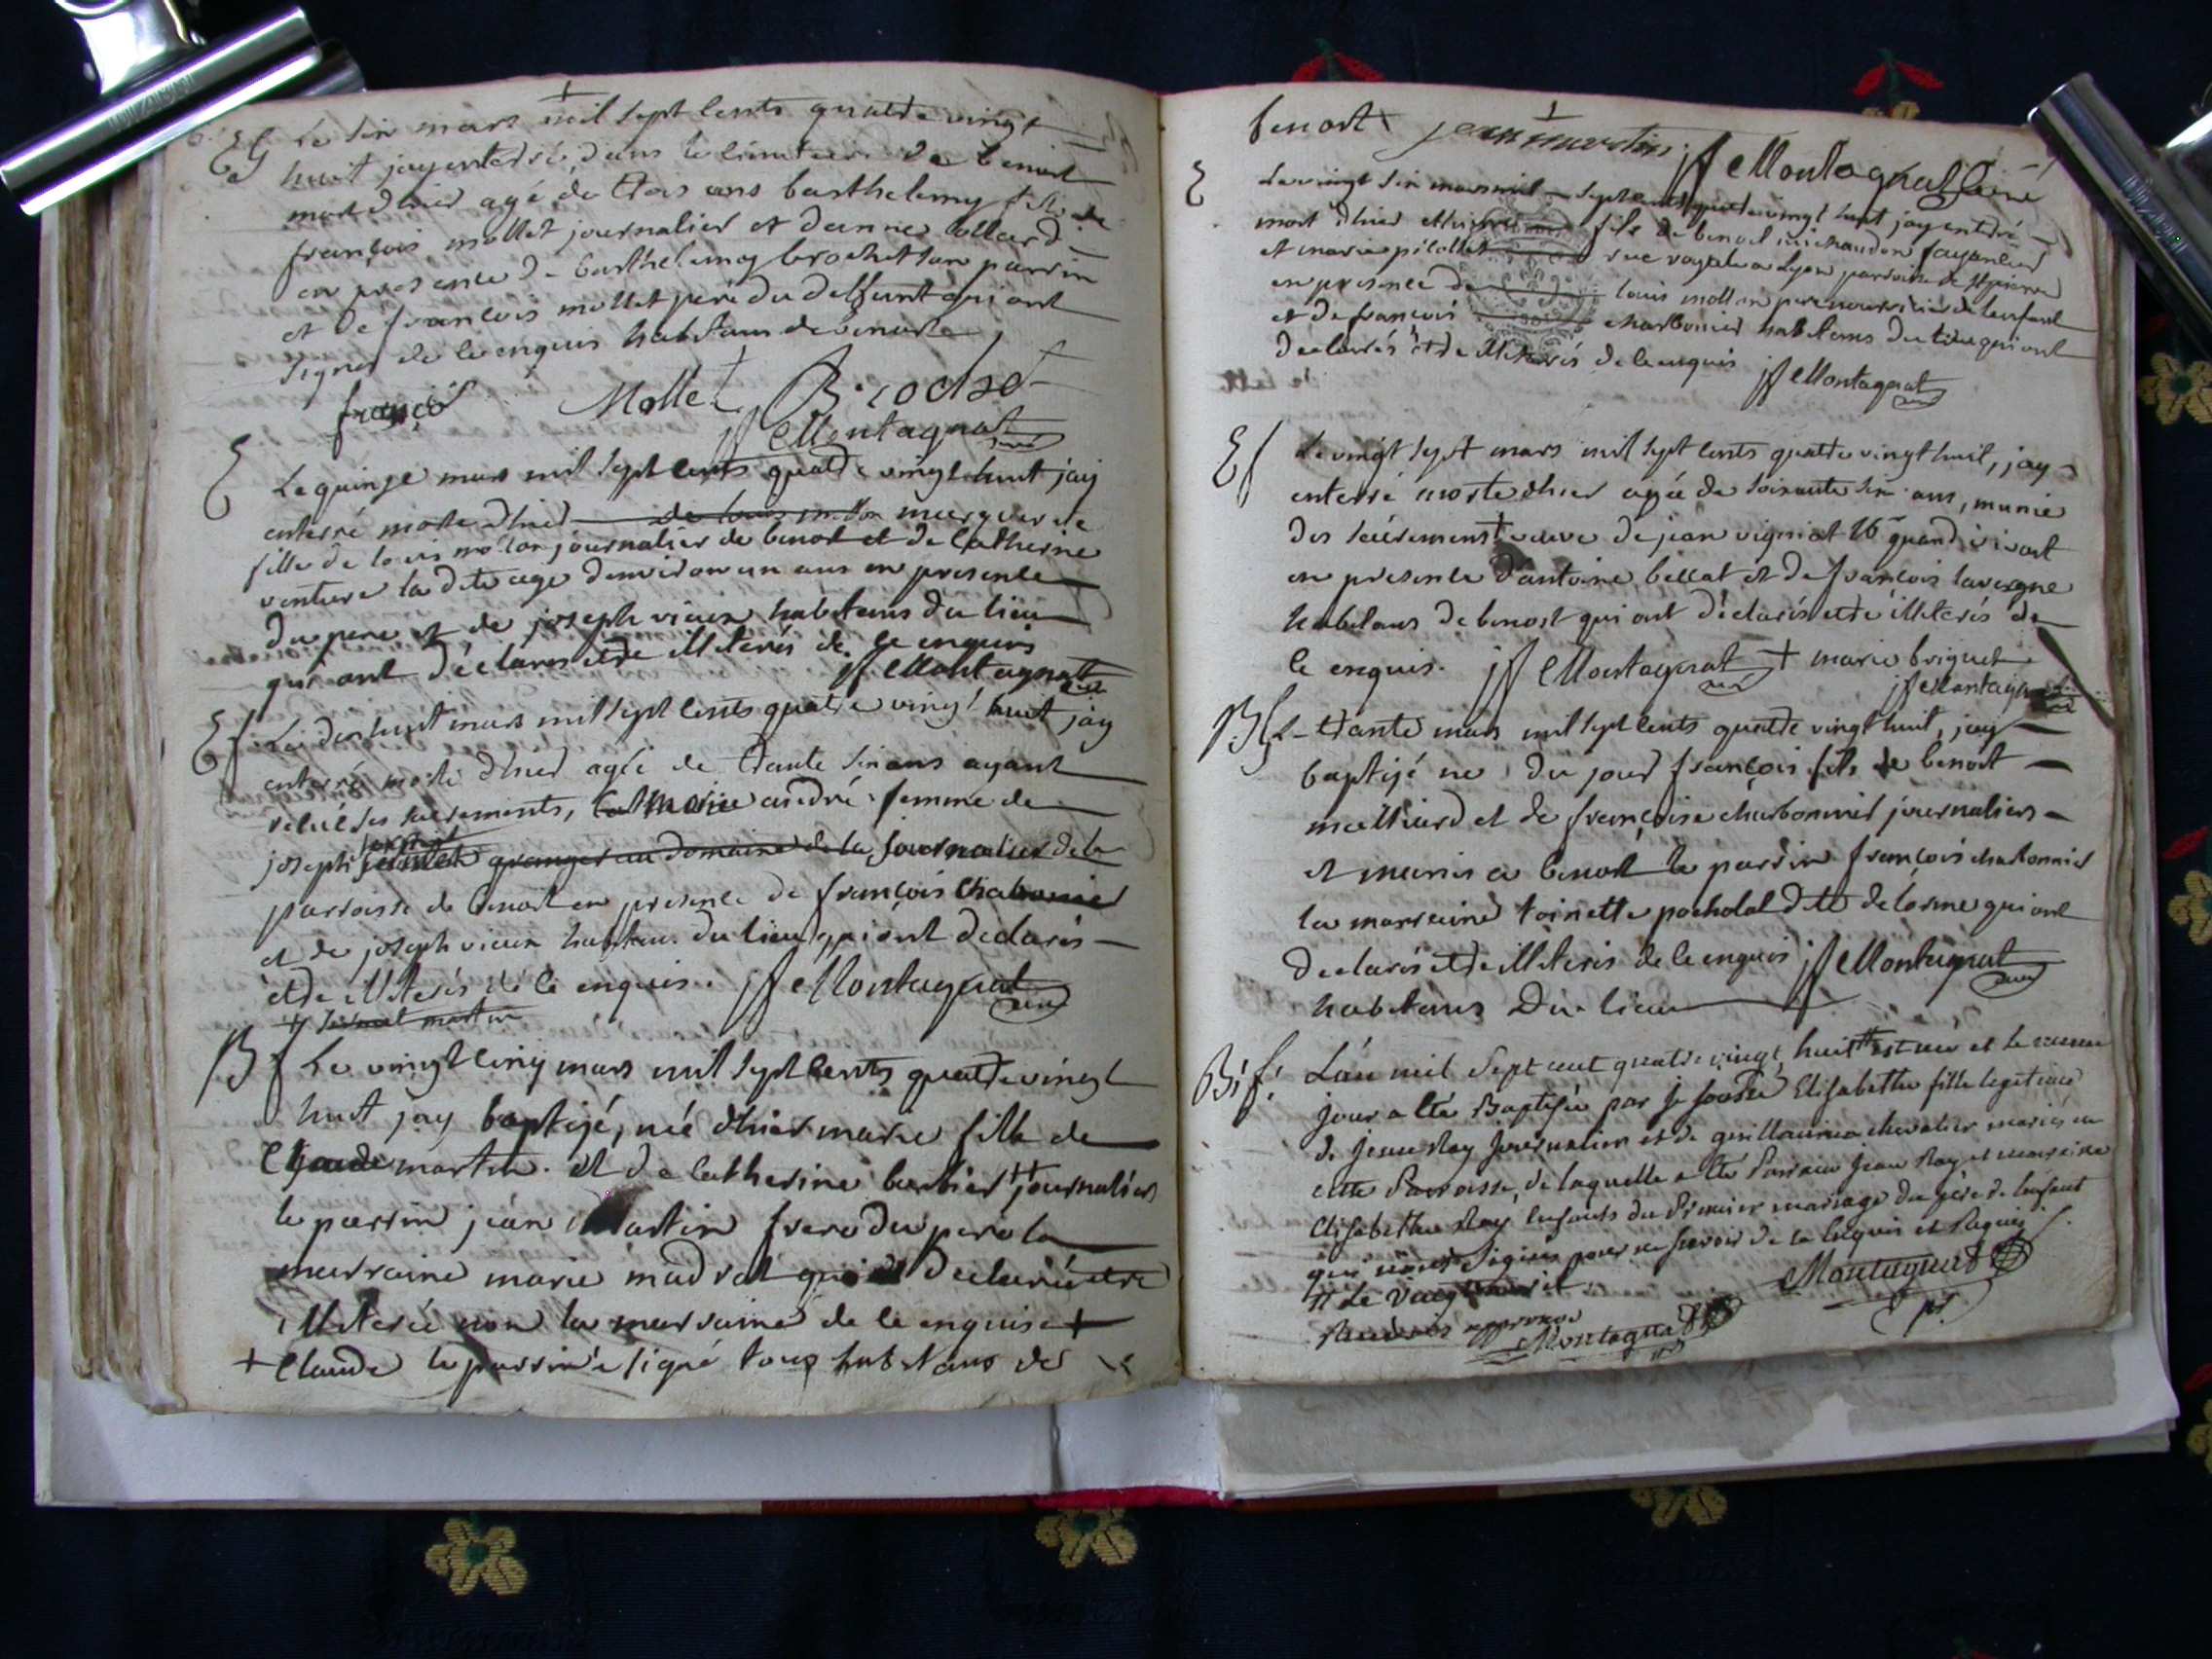 Le six mars mil sept cents quatre vingt
huit jay enterré dans le cimetiere de benost
mort dhier agé de trois ans barthelemy fils de
françois mollet journalier et danne collard
en presence de barthelemy brochet son parrin
et de françois mollet pere du deffunt qui ont
signés de ce enquis habitans de benost
françoi Mollet Brochet
jf Montagnat curé
E
Le quinze mars mil sept cents quatre vingt huit jay
enterré morte dhier marguerite
fille de louis molon journalier de benost et de Catherine
venture la dite agée denviron un ans en presence
du pere et de joseph vieux habitans du lieu
qui ont déclarés etre illiterés de ce enquis
jf Montagnat curé
Ef Le dix huit mars mil sept cents quatre vingt huit jay
enterré morte dhier agée de trante six ans ayant
reçüe ses sacrements, marie andré femme de
joseph granger au domaine de la journalier de la
parroisse de benost en presence de françois Chabonier
et de joseph vieux habitans du lieu qui ont declarés
etre illiterés de ce enquis. jf Montagnat curé
Bf Le vingt cinq mars mil sept cents quatre vingt
huit jay baptizé, née dhier marie fille de
Claude martin et de Catherine barbier ++ journaliers
le parrin jean Martin frere du pere la
marraine marie madrat qui declaré etre
illiterée non la marraine de ce enquise +
+ Claude le parrin a signé tous habitans de
benost jean martin jf Montagnat curé
E
Le vingt six mars mil sept cents quatre vingt huit jay enterré
mort dhier fils de benoit michaudon fayancier
et marie pilollet rue royale a Lyon parroisse de St pierre
en presence de louis mollon pere nourricier de lenfant
et de françois charbonier habitans du lieu qui ont
declarés etre illiterés de ce enquis jf Montagnat curé
Ef Le vingt sept mars mil sept cents quatre vingt huit, jay
enterré morte dhier agée de soixante six ans, munie
des sacrements + veuve de jean vigniot quand vivoit
en presence dantoine bellat et de françois lavergne
habitans de benost qui ont déclarés etre illiterés de
ce enquis. jf Montagnat curé + marie briguet
jf Montagnat curé
BG Le trante mars mil sept cents quatre vingt huit, jay
baptizé né du jour françois fils de benoit
mailliard et de françoise charbonnier journaliers
et mariés a benost le parrin françois charbonnier
la marraine toinette pocholat dite delorme qui ont
declarés etre illiterés de ce enquis jf Montagnat curé
habitans du lieu
B.f. L'an mil Sept cent quatre vingt huit # est née et le meme
jour a été Baptisée par je soussé Elisabethe fille legitime
de Jean Ray journalier et de guillaumea chevalier mariés en
cette Parroisse, de laquelle a été Parrain Jean Ray et marraine
Elisabethe Ray enfants du Premier mariage du père de lenfant
qui n'ont signés pour ne savoir de ce Enquis et Requis
# Le
Montagnat
Montagnat